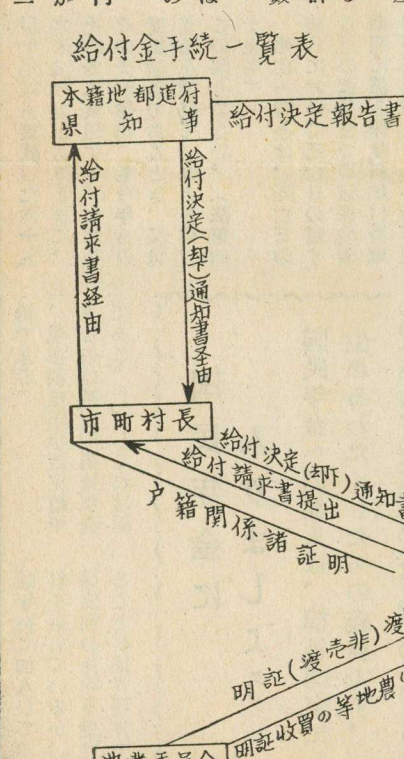 給付金手続一覧表
本籍地都道府
県知事
給付決定報告書
給付請求書経由
給付決定(却下)通知書圣由
市町村長
給付決定(却下)通知書
給付請求書提出
戸籍関係諸証明
明証(渡売非)渡
明証收買の等地農